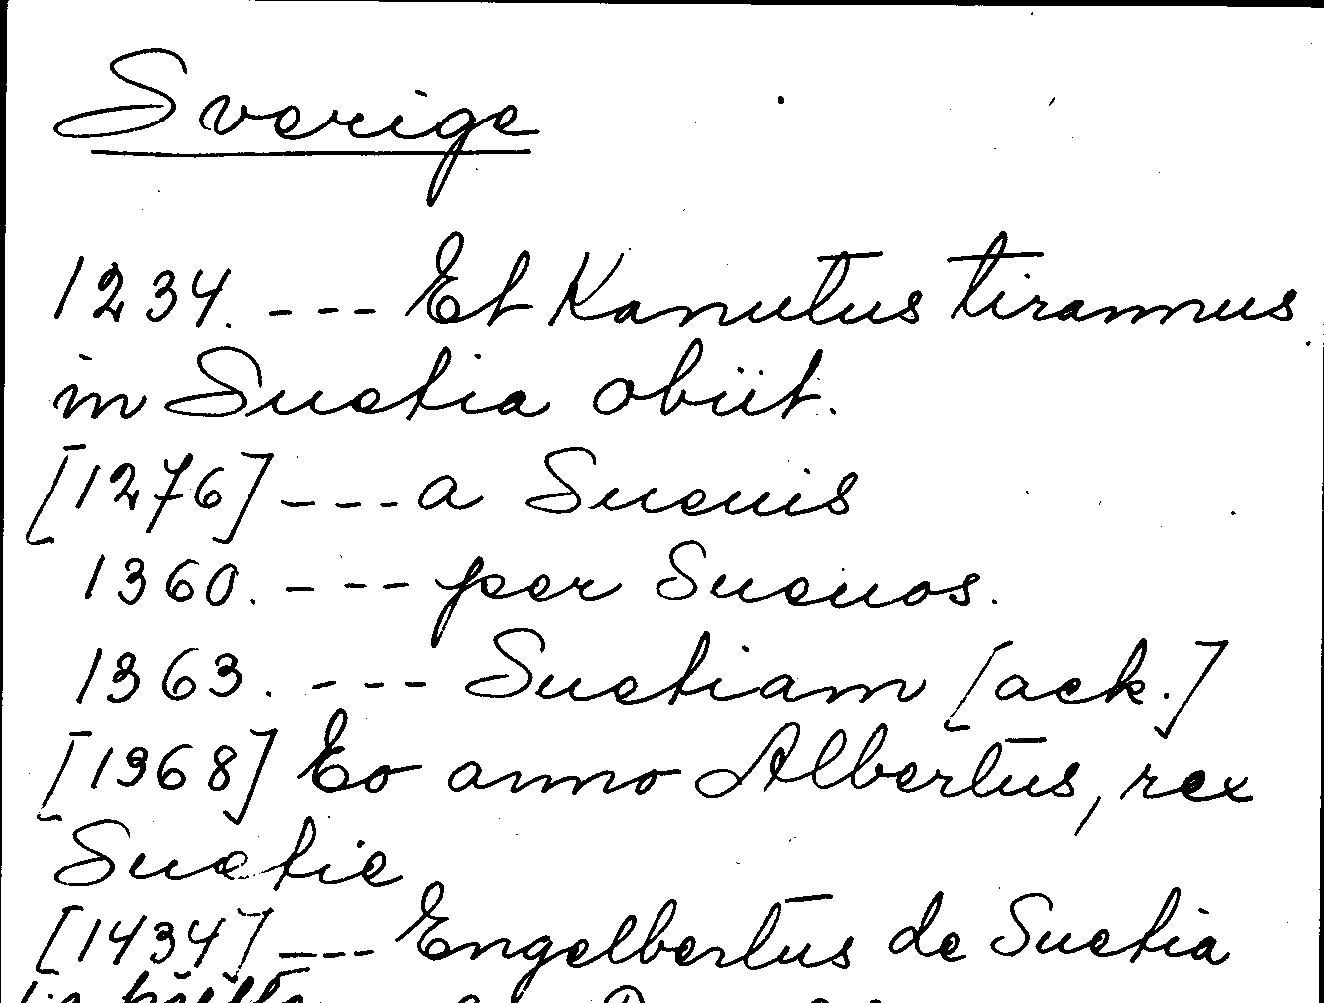 Sverige
1234. --- Et Kanutus tirannus
in Suetia obiit.
[1276] --- a Sueuis
1360. --- per Sueuos.
1363. --- Suetiam [ack.]
[1368] Eo anno Albertus, rex
Suetie
[1434] --- Engelbertus de Suetia